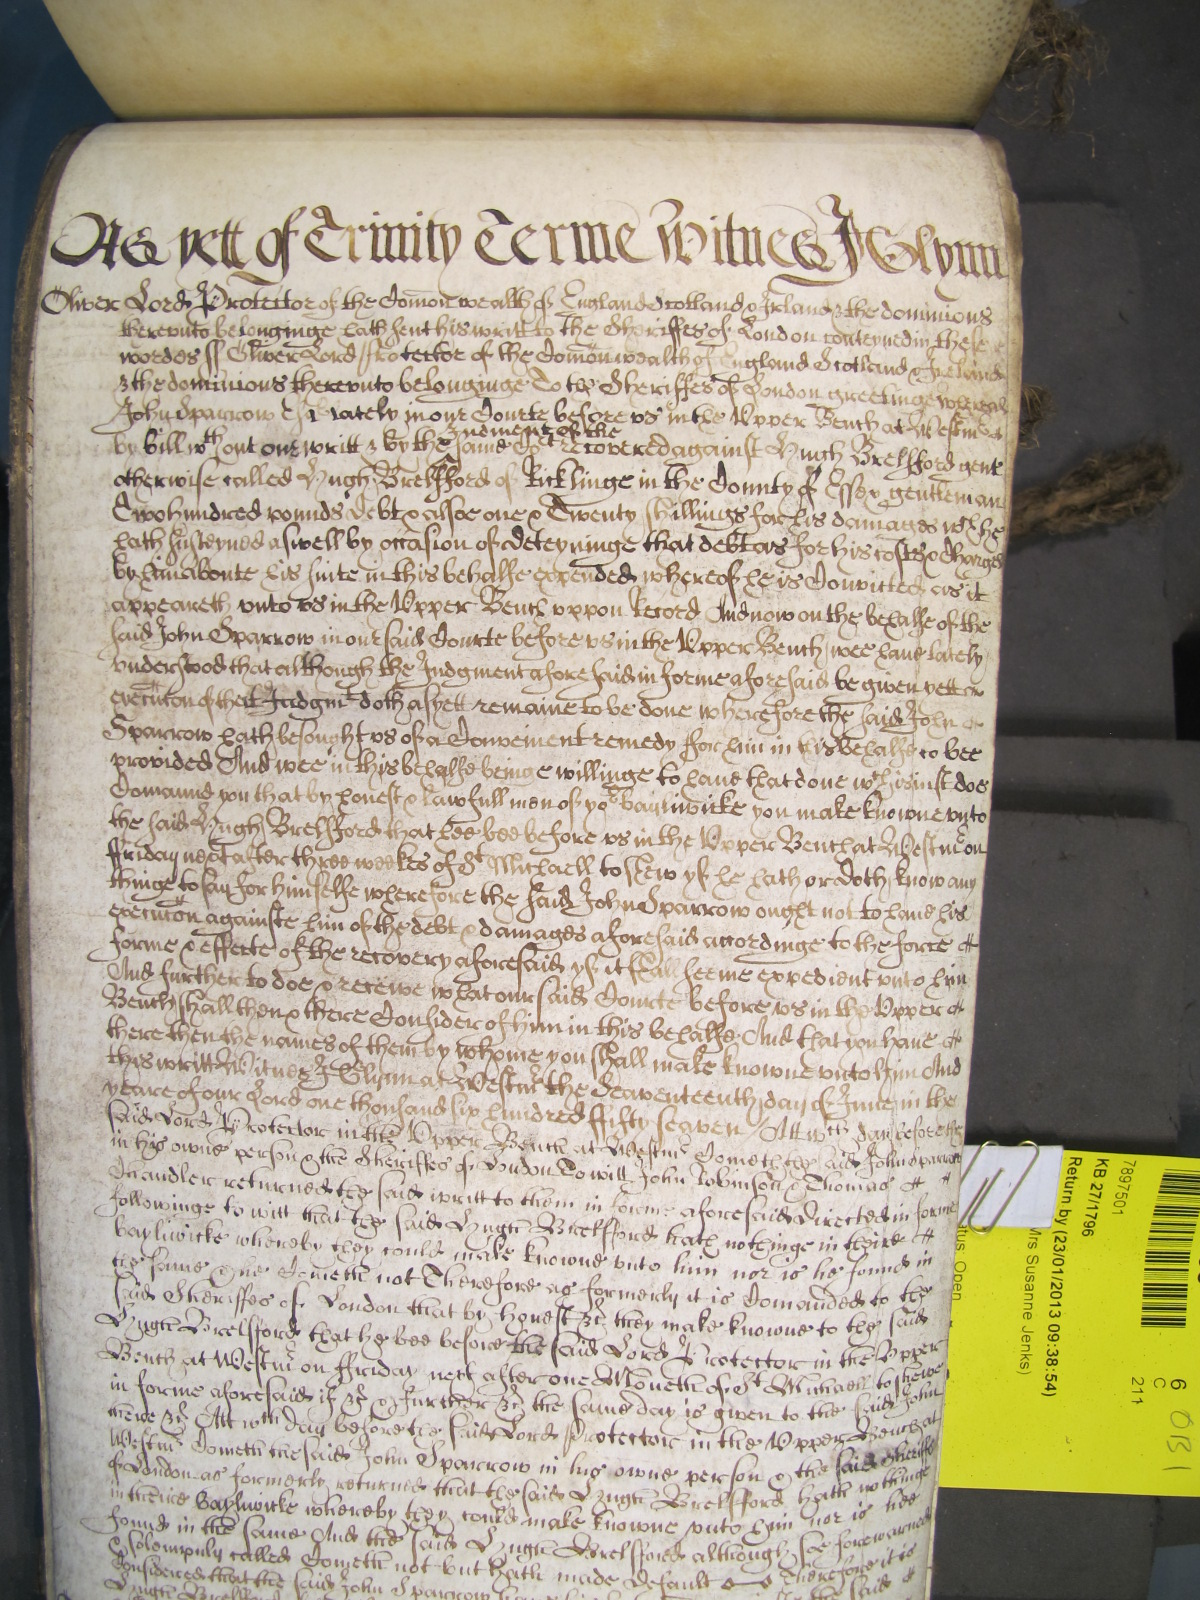 As yett of Trinity Terme Witnes J Glynn
Oliver Lord Protector of the Comonwealth of England Scotland & Irland & the dominions
thereunto belonginge hath sent his writt to the Sheriffes of London conteyned in these
wordes ss Oliver Lord Protector of the Comonwealth of England Scotland & Ireland
& the dominions thereunto belonginge To the Sheriffes of London greetinge whereas
John Sparrow Esqr lately in our Courte before us in the Upper Bench at Westmr
Judement of the
by bill wthout our writt & by the same Cort recovered against Hugh Brelsford gent
otherwise called Hugh Brelsford of Ricklinge in the County of Essex gentleman
Two hundred pounds debt & alsoe one & Twenty shillings for his damages wch he
hath susteyned aswell by occasion of deteyninge that debt as for his costs & charges
by him aboute his suite in this behalfe expended whereof he is Convicted as it
appeareth unto us in the Upper Bench uppon Record And now on the behalfe of the
said John Sparrow in our said Courte before us in the Upper Bench wee have lately
understood that although the Judgment aforesaid in forme aforesaid be given yett
execution of that Judgmt doth as yett remaine to be done wherefore the said John
Sparrow hath besought us of a Convenient remedy for him in his behalfe to bee
provided And wee in this behalfe beinge willinge to have that done wch is just doe
Comaund you that by honest & lawfull men of yor bailiwicke you make knowne unto
the said Hugh Brelsford that hee bee before us in the Upper Bench at Westmr on
ffriday next after three weekes of St Michaell to shew yf he hath or doth know any
thinge to say for himselfe wherefore the said John Sparrow ought not to have his
execution againste him of the debt & damages aforesaid accordinge to the force
forme & effecte of the recovery aforesaid yf it shall seeme expedient unto him
And further to doe & receive what our said Courte before us in the Upper
Bench shall then & there Consider of him in this behalfe And that you have
there then the names of them by whome you shall make knowne unto him And
this writt Witnes J Glynn at Westmr the Seaventeenth day of June in the
yeare of our Lord one thousand six hundred fifty seaven Att wch day before the
said Lord Protector in the Upper Bench at Westmr Cometh the said John Sparrow
in his owne person & the Sheriffes of London To witt John Robinson & Thomas
Chandler returned the said writt to them in forme aforesaid directed in forme
followinge to witt that the said Hugh Brelsford hath nothinge in theire
bayliwicke whereby they could make knowne unto him nor is he found in
the same & he Cometh not Therefore as formerly it is Comanded to the
said Sheriffes of London that by honest &c they make knowne to the said
Hugh Brelsford that he bee before the said Lord Protector in the Upper
Bench at Westmr on ffriday next after one Moneth of St Michaell to shewe
in forme aforesaid if &c & further &c the same day is given to the said John
there &c Att wch day before the said Lord Protector in the Upper Bench at
Westmr Cometh the said John Sparrow in his owne person & the said Sheriffes
of London as formerly returned that the said Hugh Brelsford hath nothinge
in theire bayliwicke whereby they could make knowne unto him nor is hee
found in the same And the said Hugh Brelsford although soe forewarned
& solempnly called Cometh not but hath made default Therefore it is
Considered that the said John Sparrow
Hugh Brelsford
7897501
KB 27/1796
Return by (23/01/2013 09:38:54)
Mrs Susanne Jenks)
atus Open
6
C
211
OB1